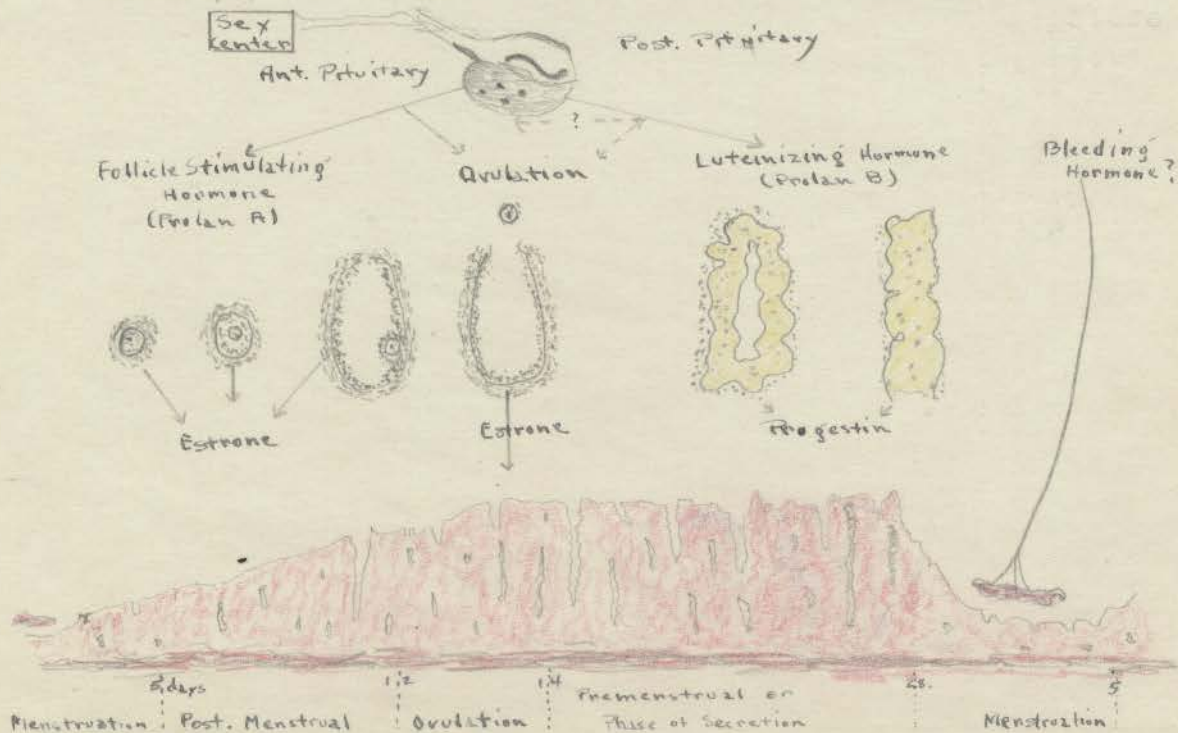 Sex
Center
Post. Pituitary
Ant. Pituitary
?
Follicle Stimulating
Hormone
(Prolan A)
Ovulation
Luteinizing Hormone
(Prolan B)
Bleeding
Hormone?
Estrone
Estrone
Progestin
5 days
12
14
28.
5
Menstruation
Post. Menstrual
Ovulation
Premenstrual or
Phase of Secretion
Menstruation